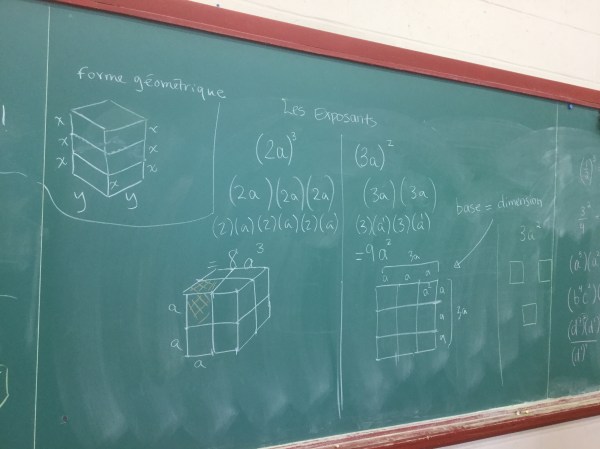 forme géométrique
x x
x x
x x
x
y y
Les Exposants
(2a)³
(2a)(2a)(2a)
(2)(a)(2)(a)(2)(a)
= 8a³
a
a
a
(3a)²
(3a)(3a)
(3)(a)(3)(a)
=9a²
3a
a a a
a² a
a 3a
a
base = dimension
3a²